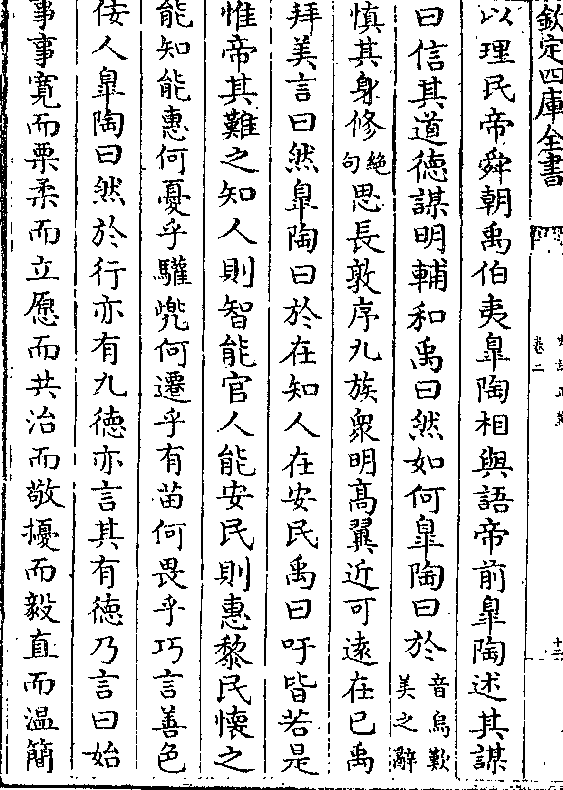 欽定四庫全書
卷二
以理民帝舜朝禹伯夷皐陶相與語帝前皐陶述其謀
曰信其道徳謀明輔和禹曰然如何皐陶曰於音烏歎美之辭
慎其身修絶句思長敦序九族衆明髙翼近可遠在已禹
拜美言曰然皐陶曰於在知人在安民禹曰吁皆若是
惟帝其難之知人則智能官人能安民則惠黎民懷之
能知能惠何憂乎驩兜何遷乎有苗何畏乎巧言善色
佞人皐陶曰然於行亦有九徳亦言其有徳乃言曰始
事事寛而栗柔而立愿而共治而敬擾而毅直而温簡